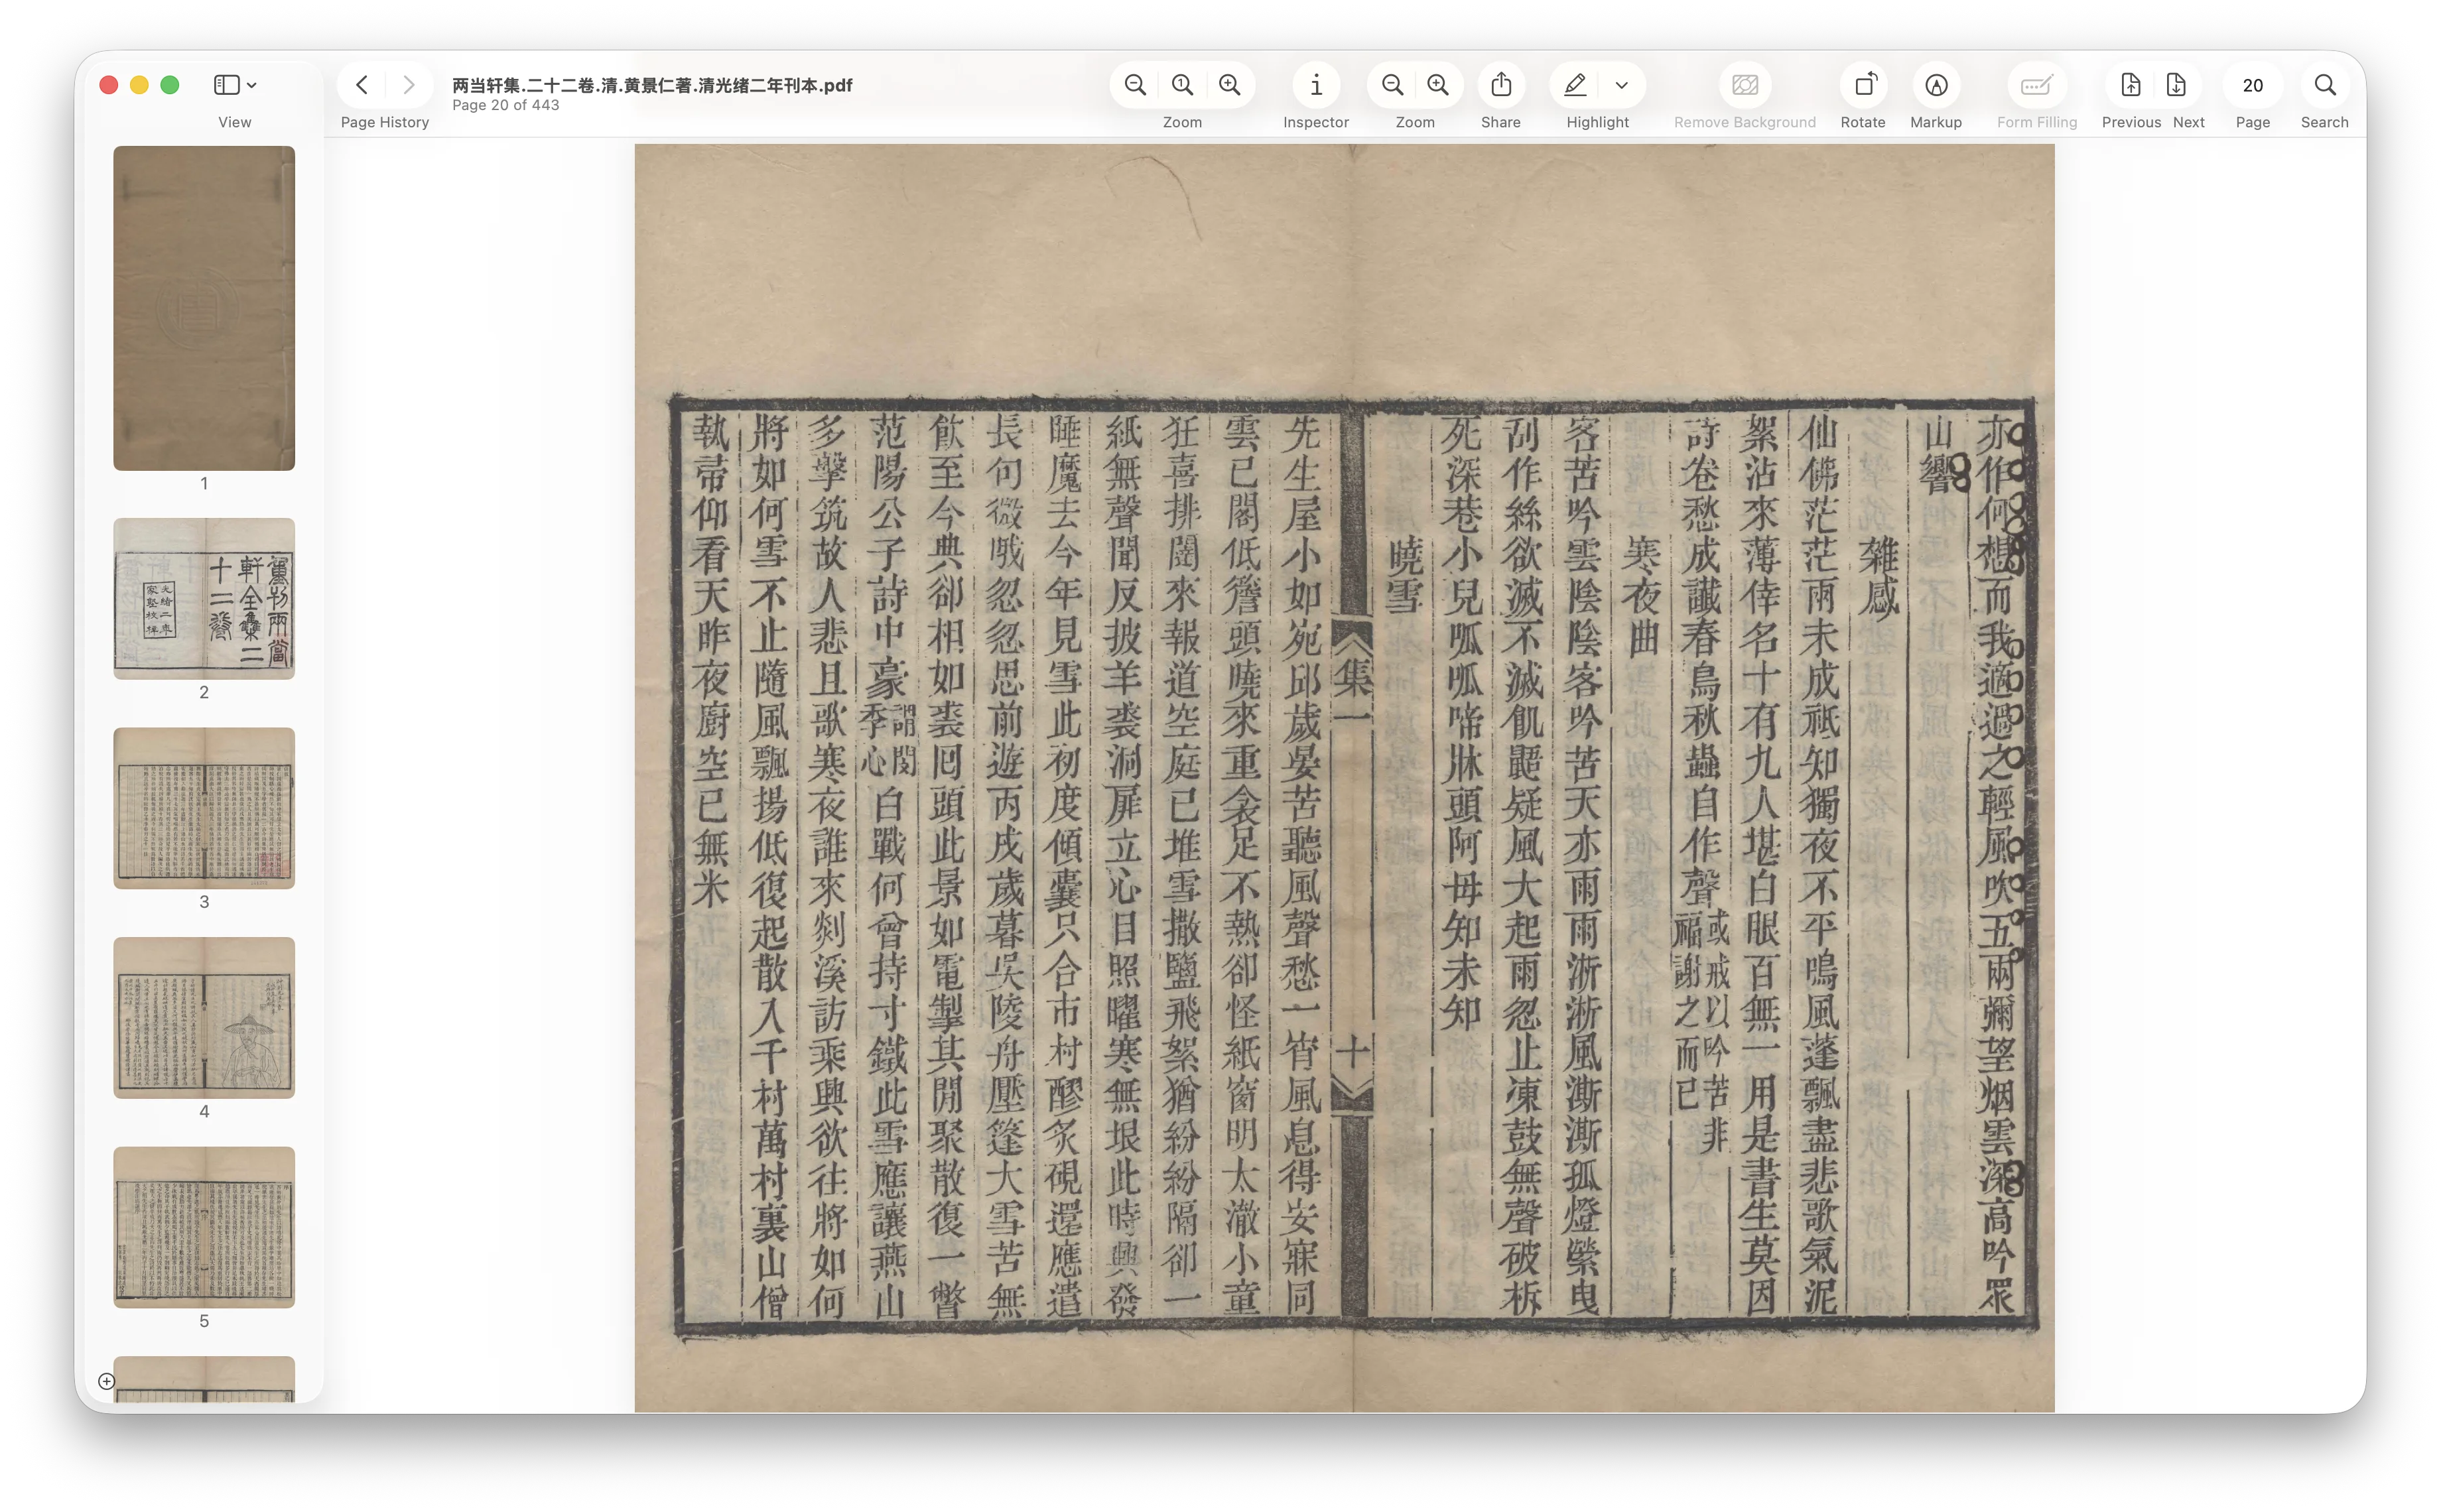 两当轩集.二十二卷.清.黄景仁著.清光绪二年刊本.pdf
Page 20 of 443
View
Page History
Zoom
Inspector
Zoom
Share
Highlight
Remove Background
Rotate
Markup
Form Filling
Previous
Next
20
Page
Search
1
重刊兩當
軒全集二
十二卷
光緒二年
家塾校梓
2
3
4
5
亦作何想而我適過之輕風吹五兩彌望烟雲深高吟眾
山響
雜感
仙佛茫茫兩未成祗知獨夜不平鳴風蓬飄盡悲歌氣泥
絮沾來薄倖名十有九人堪白眼百無一用是書生莫因
詩卷愁成讖春鳥秋蟲自作聲或戒以吟苦非福謝之而已
寒夜曲
客苦吟雲陰陰客吟苦天亦雨雨淅淅風澌澌孤燈縈曳
刮作絲欲滅不滅飢鼯疑風大起雨忽止凍鼓無聲破柝
死深巷小兒呱呱啼牀頭阿母知未知
曉雪
集一
十
先生屋小如宛邱歲晏苦聽風聲愁一宵風息得安寐同
雲已閣低簷頭曉來重衾足不熱卻怪紙窗明太澈小童
狂喜排闥來報道空庭已堆雪撒鹽飛絮猶紛紛隔卻一
紙無聲聞反披羊裘洞扉立心目照曜寒無垠此時興發
睡魔去今年見雪此初度傾囊只合市村醪炙硯還應遣
長句微哦忽忽思前遊丙戌歲暮吳陵舟壓篷大雪苦無
飲至今典卻相如裘回頭此景如電掣其閒聚散復一瞥
范陽公子詩中豪謂閔季心白戰何曾持寸鐵此雪應讓燕山
多擊筑故人悲且歌寒夜誰來剡溪訪乘興欲往將如何
將如何雪不止隨風飄揚低復起散入千村萬村裏山僧
執帚仰看天昨夜廚空已無米